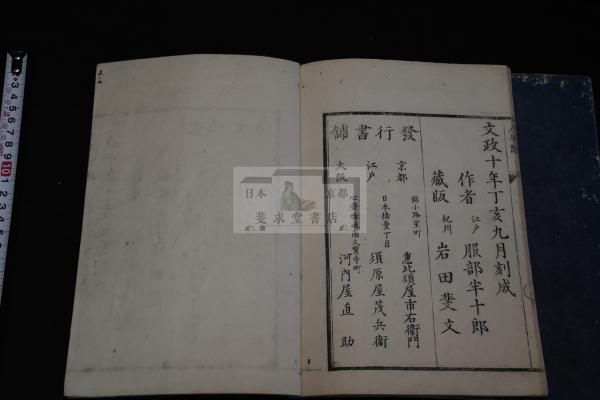 文政十年丁亥九月刻成
作者 江戸 服部半十郎
藏版 紀州 岩田斐文
發行書舗
京都 錦小路室町 恵比須屋市右衛門
江戸 日本橋壹丁目 須原屋茂兵衛
大阪 心齋橋通 河内屋直助
日本 京都
斐求堂書店
3 4 5 6 7 8 9 10 1 2 3